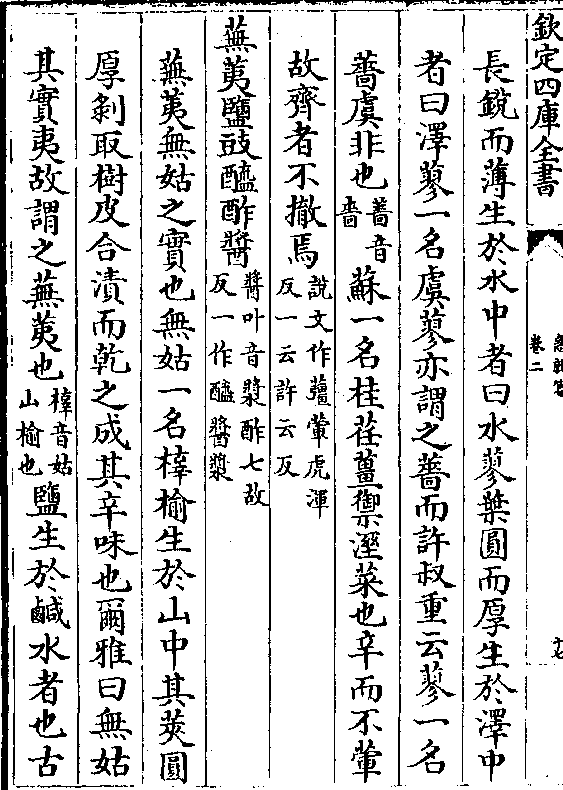 欽定四庫全書
急就篇
卷二
長銳而薄生於水中者曰水蓼葉圓而厚生於澤中
者曰澤蓼一名虞蓼亦謂之薔而許叔重云蓼一名
薔虞非也薔音嗇蘇一名桂荏薑禦溼菜也辛而不葷
故齊者不撤焉說文作䕬葷虎渾反一云許云反
蕪荑鹽豉醯酢醬醬叶音漿酢七故反一作醯醬漿
蕪荑無姑之實也無姑一名樟榆生於山中其莢圓
厚剝取樹皮合漬而乾之成其辛味也爾雅曰無姑
其實夷故謂之蕪荑也樟音姑山榆也鹽生於鹹水者也古